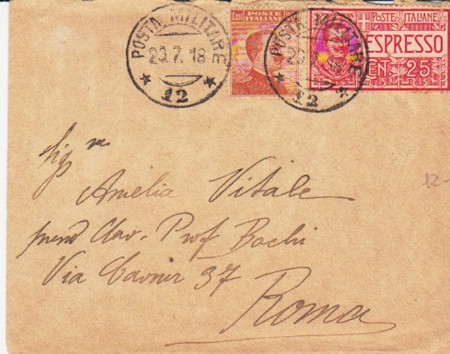 POSTA MILITARE
20.7.18
12
POSTE ITALIANE
POSTA MILITARE
12
POSTE ITALIANE
ESPRESSO
CEN. 25
Sig.na
Amelia Vitale
Cav. Prof Bachi
Via Cavour 37
Roma
12-